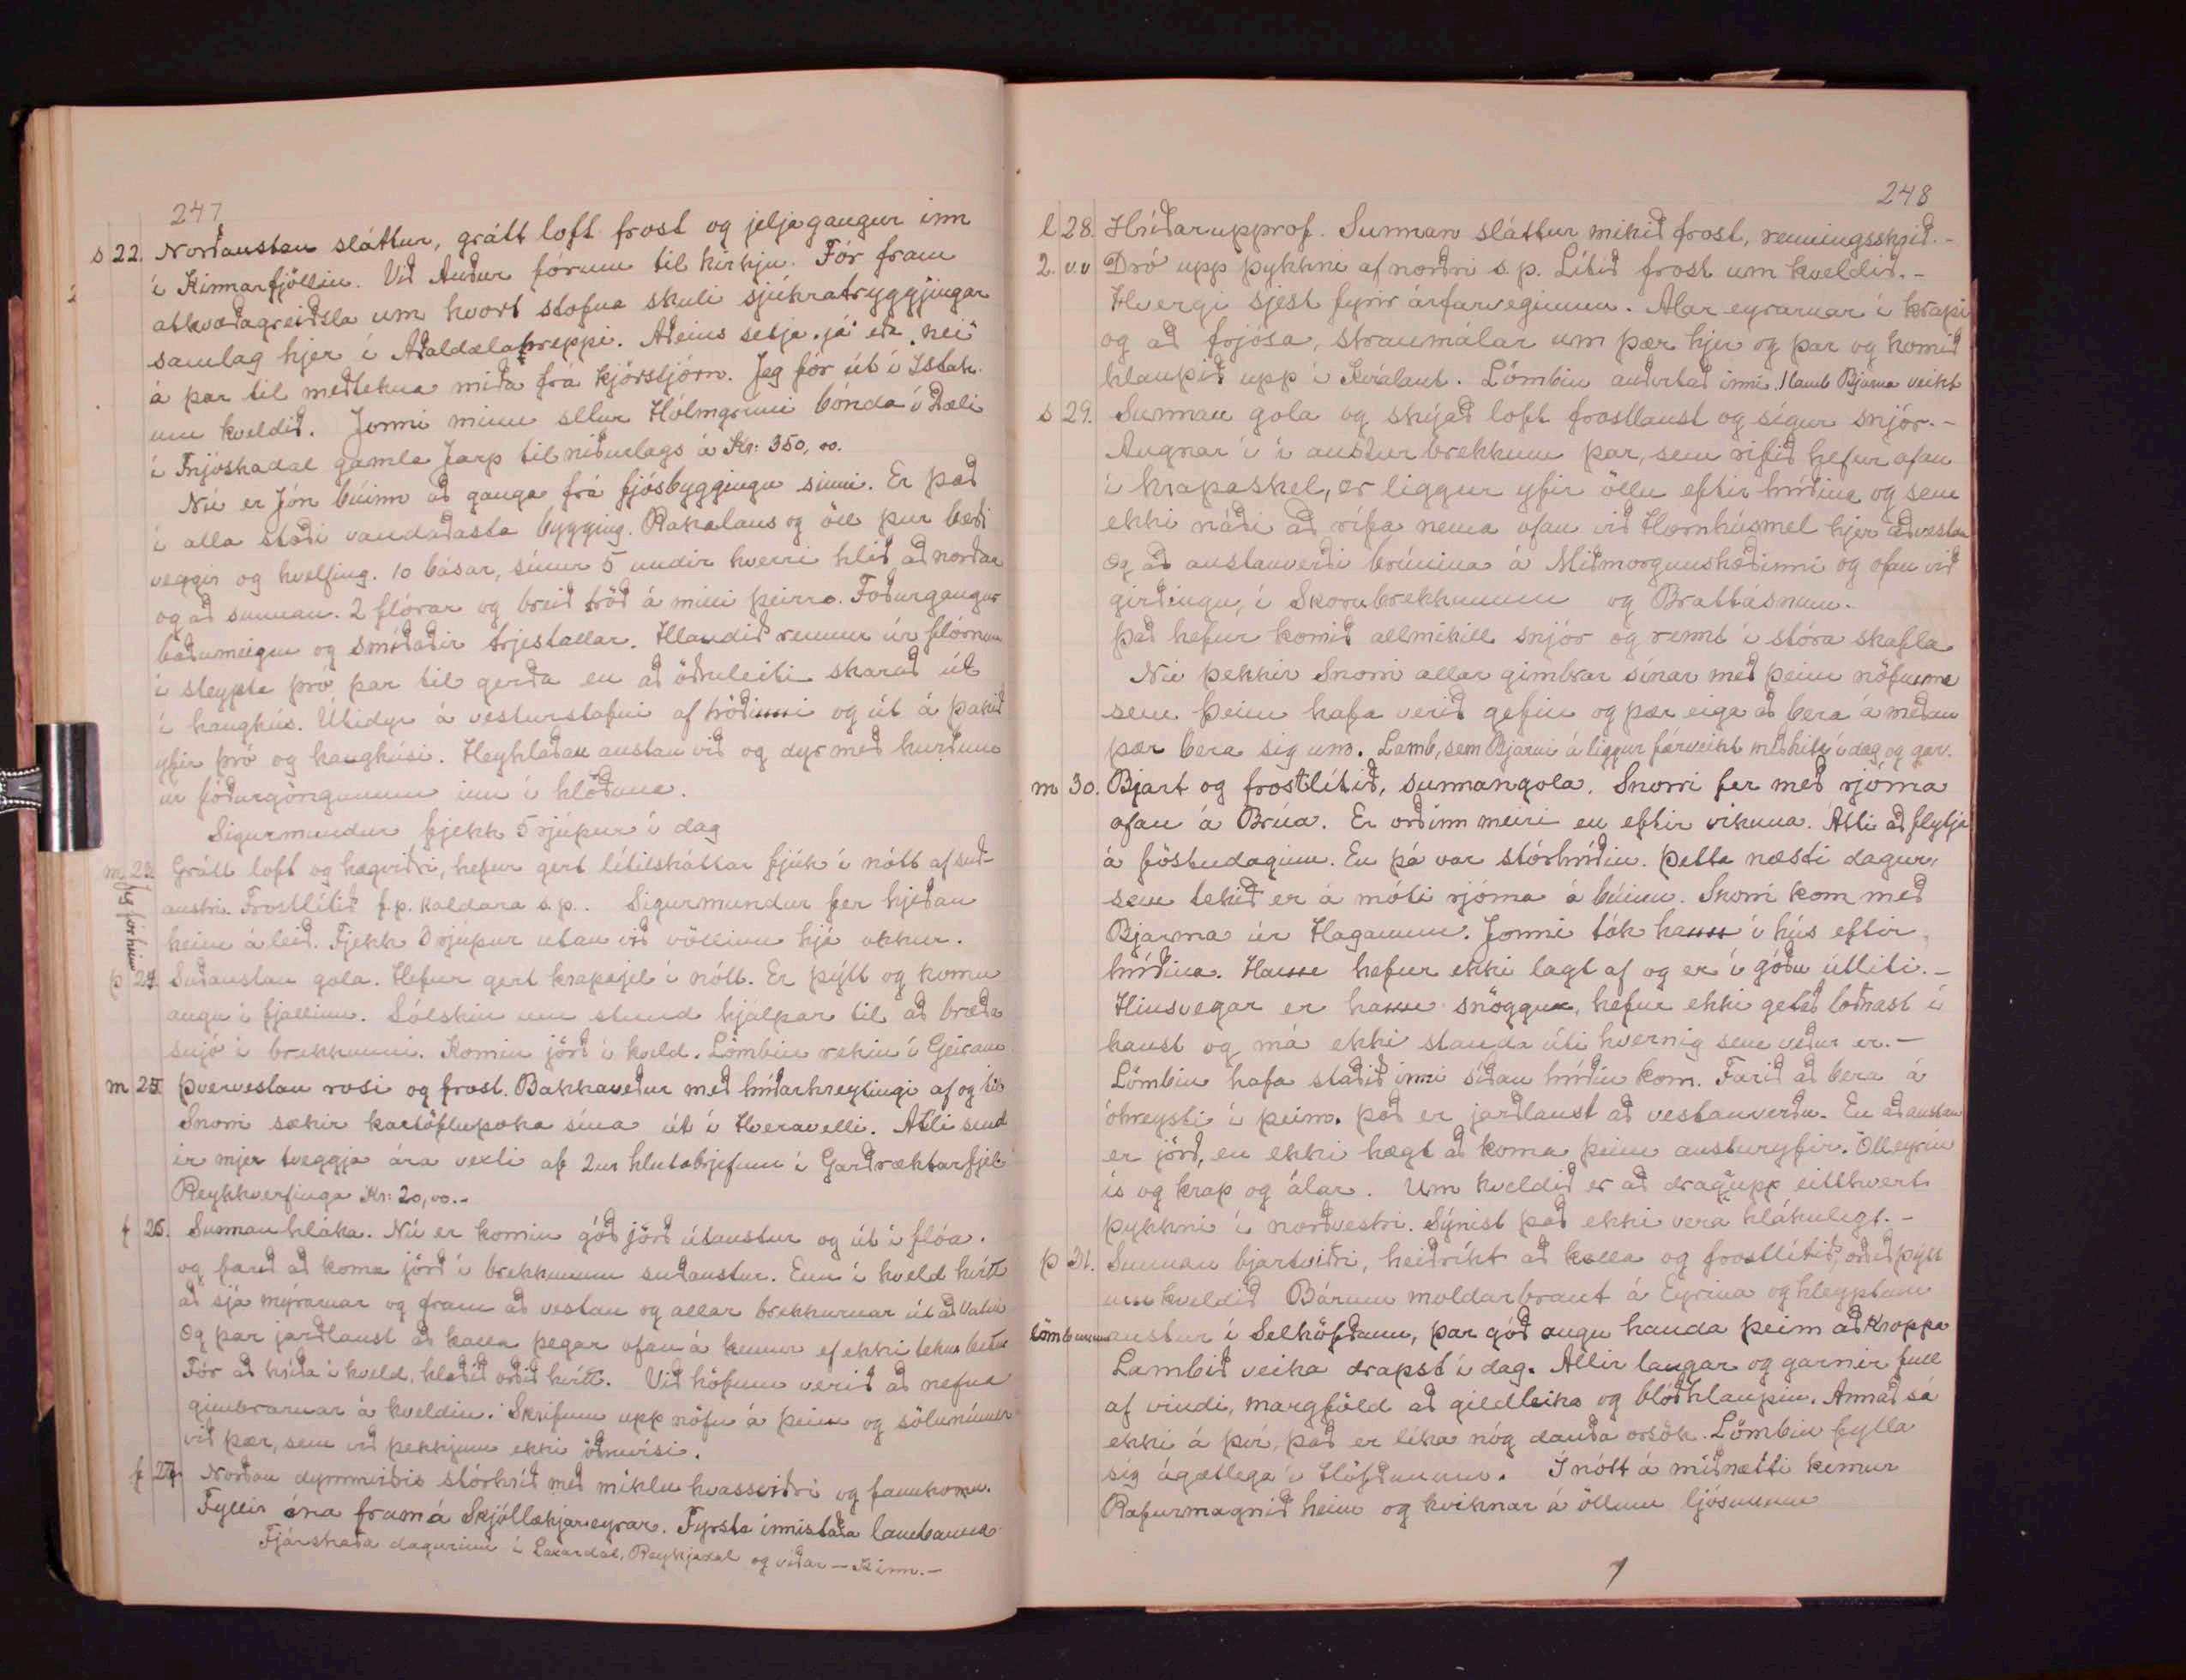 247
s 22. Norðaustan sláttur, grátt loft frost og jeljagangur inn
í Kinnarfjöllin. Við Auður fórum til kirkju. Fór fram
atkvæðagreiðsla um hvort stofna skuli sjúkratryggjingar
samlag hjer í Aðaldælahreppi. Aðeins setja "já" eða "nei"
á þar til meðtekna miða frá kjörstjórn. Jeg fór út í Ístak.
um kveldið. Jonni minn sellur Hólmgrími bónda í Dæli
í Fnjóskadal gamla Jarp til niðurlags á Kr: 350,00.
Nú er Jón búinn að ganga frá fjósbyggingu sinni. Er það
í alla staði vandaðasta bygging. Rakalaus og öll þur bæði
veggir og hvelfing. 10 básar, sínur 5 undir hverri hlið að norðan
og að sunnan. 2 flórar og breið tröð á milli þeirra. Foðurgangur
baðumeigin og smíðaðir trjestallar. Hlandið rennur úr flórnum
í steypta þró þar til gerða en að öðruleiti skarað út
í haughús. Útidyr á vesturstafni af tröðinni og út á þakið
yfir þró og haughúsi. Heyhlaðan austan við og dyr með hurðum
úr fóðurgöngunum inn í hlöðuna.
Sigurmundur fjekk 5 rjúpur í dag
m 23. Grátt loft og hægviðri, hefur gert lítilsháttar fjúk í nótt af suð-
austri. Frostlítið f.p. kaldara s.p.. Sigurmundur fer hjeðan
Jeg fór heim
heim á leið. Fjekk 8 rjúpur utan við völlinn hjá okkur.
þ 24. Suðaustan gola. Hefur gert krapajel í nótt. Er þýtt og komu
augu í fjallinu. Sólskin um stund hjálpar til að bræða
snjó í brekkunni. Komin jörð í kveld. Lömbin rekin í Geirann
m 25. Þvervestan rosi og frost. Bakkaveður með hríðarhreytingi af og til
Snorri sækir kartöflupoka sína út í Hveravelli. Atli send
ir mjer tveggja ára vexti af 2ur hlutabrjefum í Garðræktarfjel
Reykhverfinga Kr: 20,00.-
f 26. Sunnan hláka. Nú er komin góð jörð útaustur og út í flóa.
og farið að koma jörð í brekkunum suðaustur. Enn í kveld hvítt
að sjá mýrarnar og fram að vestan og allar brekkurnar út að Vatni
Og þar jarðlaust að kalla þegar ofan á kemur ef ekki tekur betur
Fór að hríða í kveld, hlaðið orðið hvítt. Við höfum verið að nefna
gimbrarnar á kveldin. Skrifum upp nöfn á þeim og sölunúmer
við þær, sem við þekkjum ekki öðruvísi.
f 27. Norðan dymmviðris stórhríð með miklu hvassviðri og fannkomu.
Fyllir ána fram á Skjóllækjareyrar. Fyrsta innistaða lambanna
Fjárskaða dagurinn í Laxárdal, Reykjadal og víðar — Kinn.—
248
l 28. Hríðarupprof. Sunnan sláttur mikið frost, renningsskrið.-
2. v.v Dró upp þykkni af norðri s.p. Lítið frost um kveldið.-
Hvergi sjest fyrir árfarveginum. Allar eyrarnar í krapi
og að frjósa, straumálar um þær hjer og þar og komið
hlaupið upp í Kvíalaut. Lömbin auðvitað inni. 1 lamb Bjarna veikt
s 29. Sunnan gola og skýjað loft frostlaust og sígur snjór.-
Augnar í í austur brekkum þar, sem rifið hefur ofan
í krapaskel, er liggur yfir öllu eftir hríðina og sem
ekki náði að rífa nema ofan við Hornhúsmel hjer að vestan
og að austanverði brúnina á Miðmorgunshæðinni og ofan við
girðingu, í Skorubrekkunum og Brattásnum.
Það hefur komið allmikill snjór og rennt í stóra skafla
Nú þekkir Snorri allar gimbrar sínar með þeim nöfnum
sem þeim hafa verið gefin og þær eiga að bera á meðan
þær bera sig um. Lamb, sem Bjarni á liggur fárveikt með hita í dag og gær.
m 30. Bjart og frostlítið, sunnangola. Snorri fer með rjóma
ofan á Brúa. Er orðinn meiri en eftir vikuna. Átti að flytja
á föstudaginn. En þá var stórhríðin. Þetta næsti dagur,
sem tekið er á móti rjóma á búinu. Snorri kom með
Bjarma úr Haganum. Jonni tók hann í hús eftir
hríðina. Hann hefur ekki lagt af og er í góðu útliti.-
Hinsvegar er hann snöggur, hefur ekki getað loðnast í
haust og má ekki standa úti hvernig sem veður er.—
Lömbin hafa staðið inni síðan hríðin kom. Farið að bera á
óhreysti í þeim. Það er jarðlaust að vestanverðu. En að austan
er jörð, en ekki hægt að koma þeim austuryfir. Öll eyrin
ís og krap og álar. Um kveldið er að draga upp eitthvert
þykkni í norðvestri. Sýnist það ekki vera hlákulegt.-
þ 31. Sunnan bjartviðri, heiðríkt að kalla og frostlítið, orðið þýtt
um kveldið Bárum moldarbraut á Eyrina og hleyptum
lömbunum austur í Selhöfðann, þar góð augu handa þeim að kroppa
Lambið veika drapst í dag. Allir langar og garnir full
af vindi, margföld að gildleika og blóðhlaupin. Annað sá
ekki á því, það er líka nóg dauða orsök. Lömbin fylla
sig ágætlega í Höfðanum. Í nótt á miðnætti kemur
Rafurmagnið heim og kviknar á öllum ljósunum